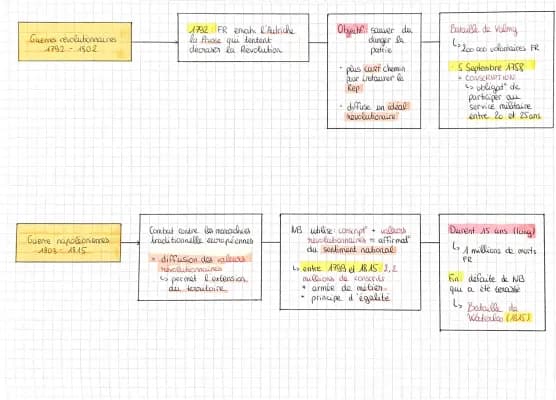 Guerres révolutionnaires
1792 - 1802
1792 FR envahi l'Autriche
la Prusse qui tentent
d'écraser la Révolution
Objectif: sauver du
danger la
patrie
• plus court chemin
pour instaurer la
Rep
• diffuse un idéal
révolutionnaire
Bataille de Valmy
↳ 200 000 volontaires FR
5 Septembre 1798
= CONSCRIPTION
↳ obligat° de
participer au
service militaire
entre 20 et 25 ans
Guerre napoléoniennes
1803 - 1815
Combat contre les monarchies
traditionnelle européennes
= diffusion des valeurs
révolutionnaires
↳ permet l'extension
du territoire
NB utilise conscript° + valeurs
révolutionnaires = affirmat°
du sentiment national
↳ entre 1793 et 1815 2,2
millions de conscrits
• armée de métier
• principe d'égalité
Durent 15 ans (long)
↳ 1 millions de morts
FR
Fin: défaite de NB
qui a été
↳ Bataille de
Waterloo (1815)